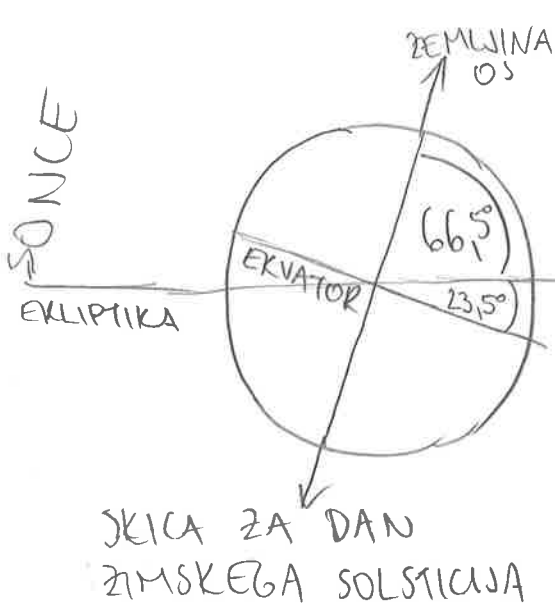 ZEMLJINA
OS
SONCE
66,5°
EKVATOR
23,5°
EKLIPTIKA
SKICA ZA DAN
ZIMSKEGA SOLSTICIJA